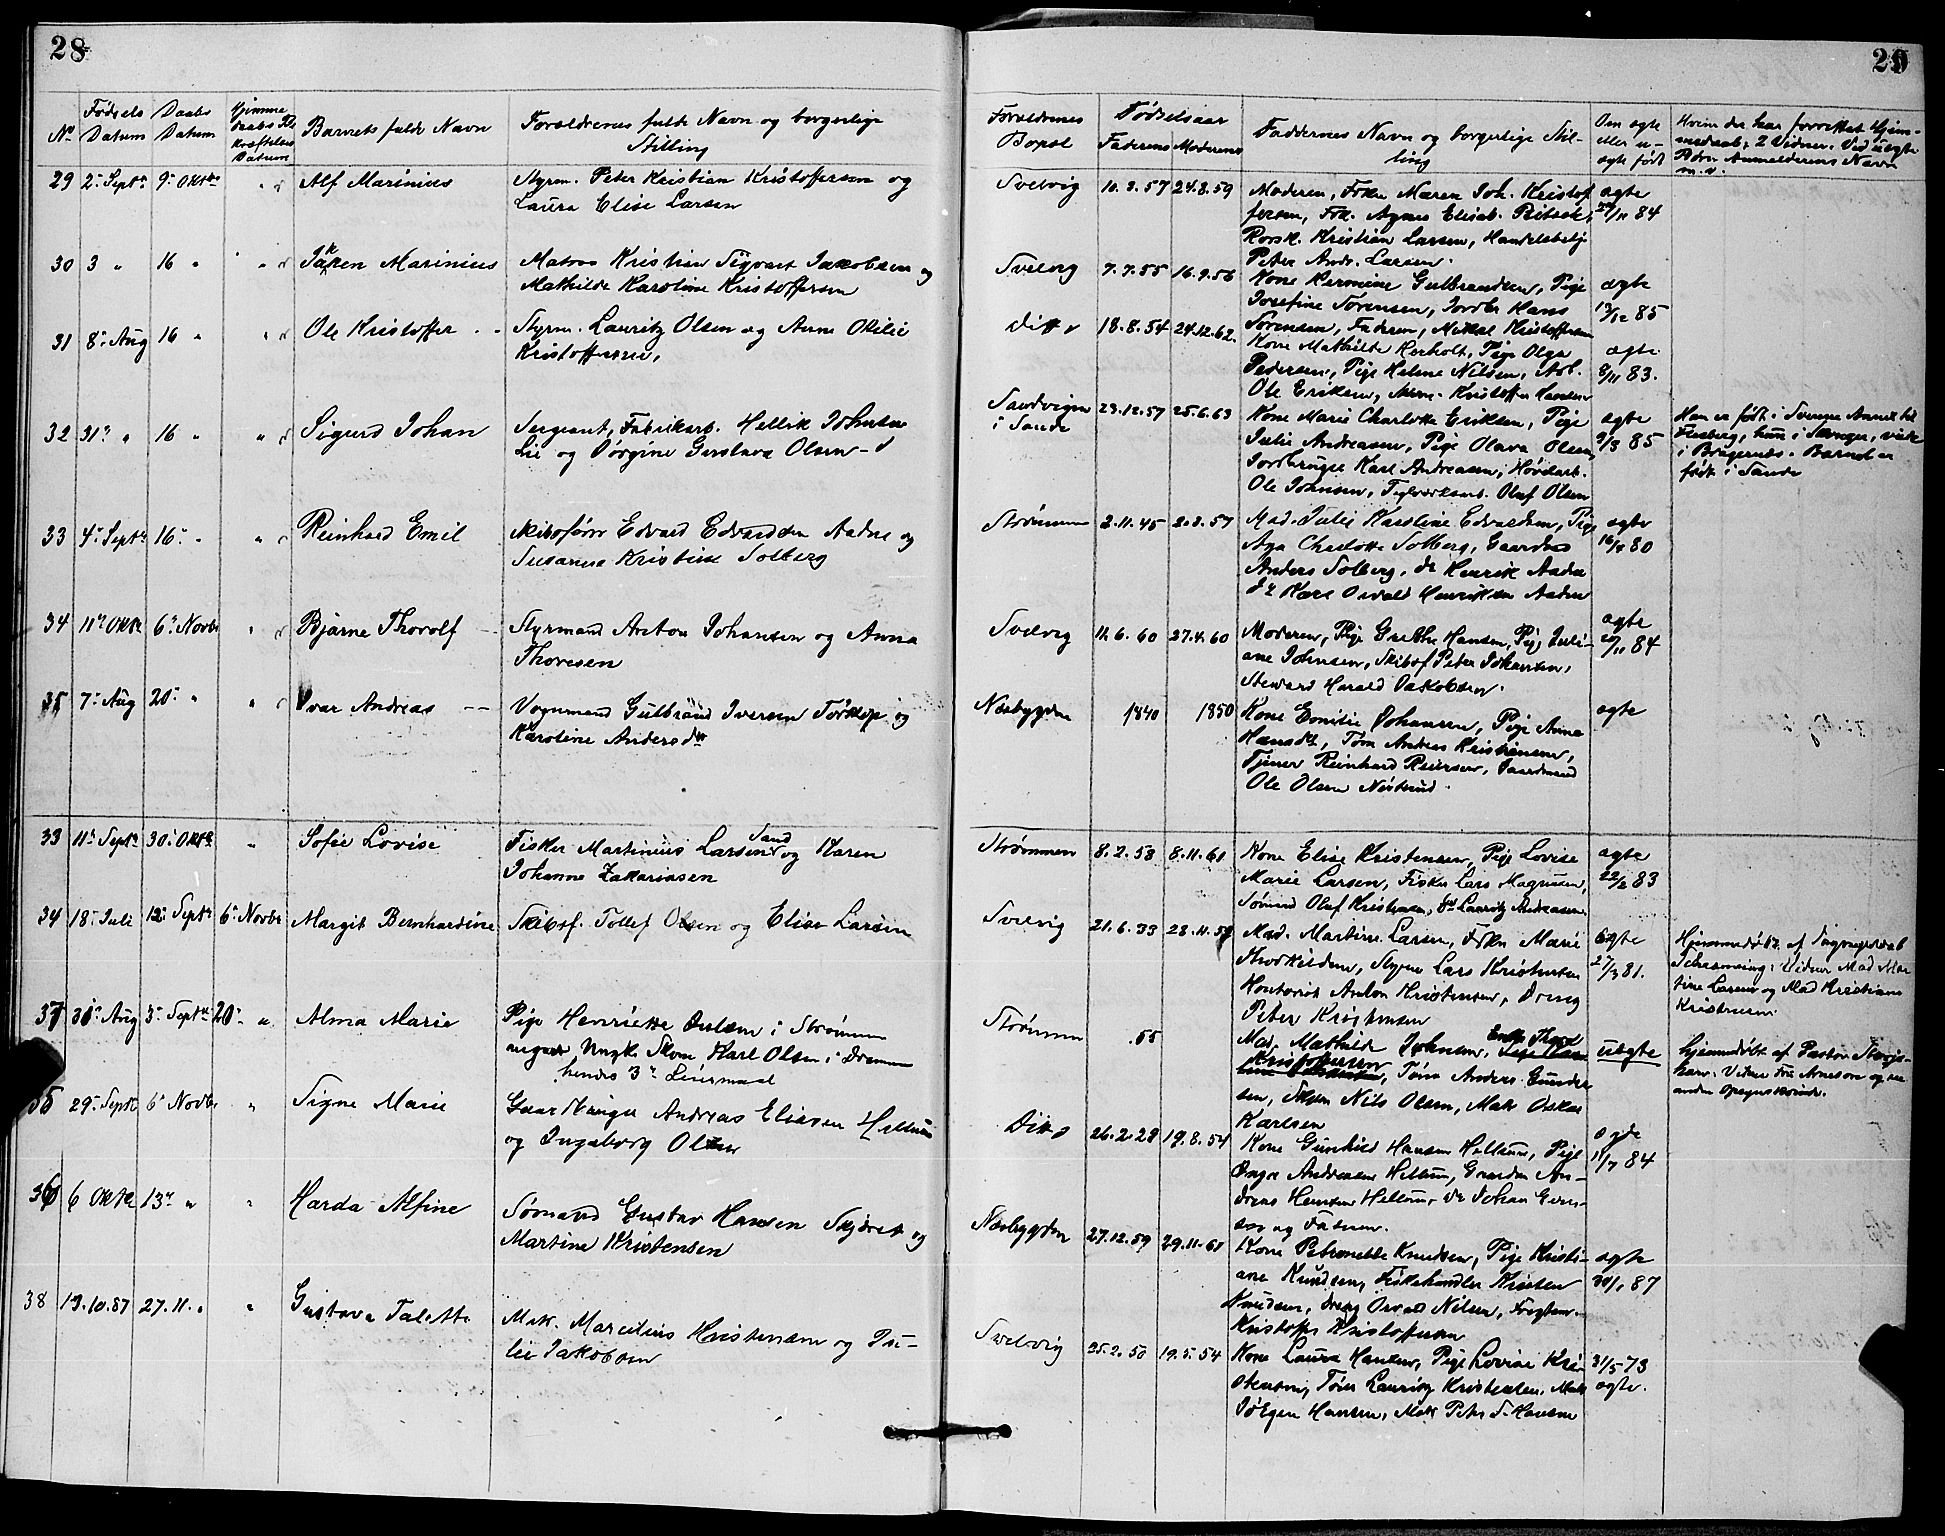 28
29
Nº
Fødsels Datum
Daabs Datum
Hjemmedaabs
Datum
Barnets fulde Navn
Forældrenes fulde Navn og borgerlige Stilling
Forældrenes Bopæl
Fødselsaar
Faderens Moderens
Faddernes Navn og borgerlige Stilling
Om ægte eller uægte født
Hvem der har forrettet Hjemmedaab; 2 Vidner. Ved uægte Børn Anmelderens Navn m. v.
29 2' Septr 9' Oktbr " Alf Marinius
Styrm. Peter Kristian Kristoffersen og
Laura Elise Larsen
Svelvig 10.9.57 24.8.59
Moderen, Frkn Maren Joh. Kristof
fersen, Frk. Agnes Elisab.
Kristian Larsen, Handelsbetj
Peter Andr. Larsen.
ægte
84
30 3 " 16 " " Marinius
Matros Kristian Sigvart Jakobsen og
Mathilde Karoline Kristoffersen
Svelvig 7.7.55 16.9.56
Kone Hermine Gulbrandsen, Pige
Josefine Sørensen, Jordbr Hans
Sørensen, Faderen, Mikkel Kristoffersen
ægte
85
31 8' Aug 16 " " Ole Kristoffer
Styrm. Lauritz Olsen og Anne Otilie
Kristoffersen,
ditto 18.8.54 24.12.62.
Kone Mathilde Herholt, Pige Olga
Pedersen, Pige Helene Nilsen, Arb.
Ole Eriksen, Kristoffer Hansen
ægte
8/11 83.
32 31' " 16 " " Sigurd Johan
Sergeant, Fabrikarb. Hellik Johnsen
Lie og Jørgine Gustava Olsen
Sandvigen
i Sande
23.12.57 25.6.63
Kone Marie Charlotte Eriksen, Pige
Julie Andreasen, Pige Olava Olsen,
Jordbruger Karl Andreasen, Høvlearb.
Ole Johnsen, Teglværksarb. Oluf Olsen
ægte
9/3 85
Han er født i Svenne Annex til
Flesberg, hun i
i Bragernes. Barnet er
født i Sande
33 4' Septr 16' " " Reinhard Emil
Skibsfører Edvard Edvardsen Aadne og
Susanna Kristine Solberg
Strømmen 2.11.45 2.8.57
Mad. Julie Karoline Edvardsen, Pige
Aga Charlotte Solberg, Gaardbr
Anders Solberg, do Henrik Aadne
do Karl Osvald Henriksen Aadne
ægte
80
34 11' Oktbr 6' Novbr " Bjarne Thorolf
Styrmand Anton Johansen og Anna
Thoresen
Svelvig 11.6.60 27.4.60
Moderen, Pige Grethe Hansen, Pige Juli-
ane Johnsen, Skibsf Peter Johansen,
Steward Harald Jakobsen.
ægte
84
35 7' Aug 20' " " Ivar Andreas
Vognmand Gulbrand Iversen Tørkop og
Karoline Andersdtr
Nesbygden 1840 1850
Kone Emilie Johansen, Pige Anna
Hansdtr, Tøm Andreas Kristiansen,
Tjener Reinhard Reiersen, Gaardmand
Ole Olsen Nøstrud.
ægte
33 11' Septr 30' Oktbr " Sofie Lovise
Fisker Martinius Larsen Sand og Karen
Johanne Zakariasen
Strømmen 8.2.58 8.11.61
Kone Elise Kristensen, Pige Lovise
Marie Larsen, Fisker Lars Magnussen,
Sømand Oluf Kristensen, do Lauritz Andreasen.
ægte
22/2 83
34 18' Juli 12' Septr 6' Novbr Margit Bernhardine
Skibsf. Tollef Olsen og Elise Larsen
Svelvig 21.6.33 28.11.59
Mad. Martine Larsen, Frkn Marie
Thorkildsen, Styrm Lars Kristensen
Kontorist Anton Kristensen, Dreng
Peter Kristensen
ægte
27/3 81.
Hjemmedøbt af
Vidner Mad Mar
tine Larsen og Mad Kristiane
Kristensen.
37 30' Aug 3' Septbr 20' " Alma Marie
Pige Henriette i Strømmen
angivet Ungk. Skom Karl Olsen i Drammen
hendes 3' Leiermaal
Strømmen .55
Mad. Mathilde Johnsen, Enke Thora
Kristoffersen, Tøm Anders Gunder
sen, Skom Nils Olsen, Matr Oskar
Karlsen
uægte
Hjemmedøbt af Pastor
Vidner Fru Arnesen og en
anden
35 29' Septbr 6' Novbr " Signe Marie
Gaardbruger Andreas Eliasen Hellum
og Ingeborg Olsen
Ditto 26.2.28 19.8.54
Kone Gunhild Hansen Hellum, Pige
Inga Andreasen Hellum, Gaardm An-
dreas Hansen Hellum, do Johan Even-
sen og Faderen.
ægte
11/7 84
36 6 Oktbr 13' " " Harda Alfine
Sømand Gustav Hansen Skjæret og
Martine Kristensen
Nesbygden 27.12.59 29.11.61
Kone Petronelle Knudsen, Pige Kristi-
ane Knudsen, Fiskehandler Kristen
Knudsen, Dreng Osvald Nilsen,
Kristoffer Kristoffersen
ægte
30/1 87
38 19.10.87 27.11. " " Gustava Talette
Matr. Marcelius Kristensen og Ju-
lie Jakobsen
Svelvig 25.2.50 19.5.54
Kone Laura Hansen, Pige Lovise Kri-
stensen, Tøm Lauritz Kristensen, Matr
Jørgen Hansen, Matr Peter S. Hansen
31/5 73
ægte.